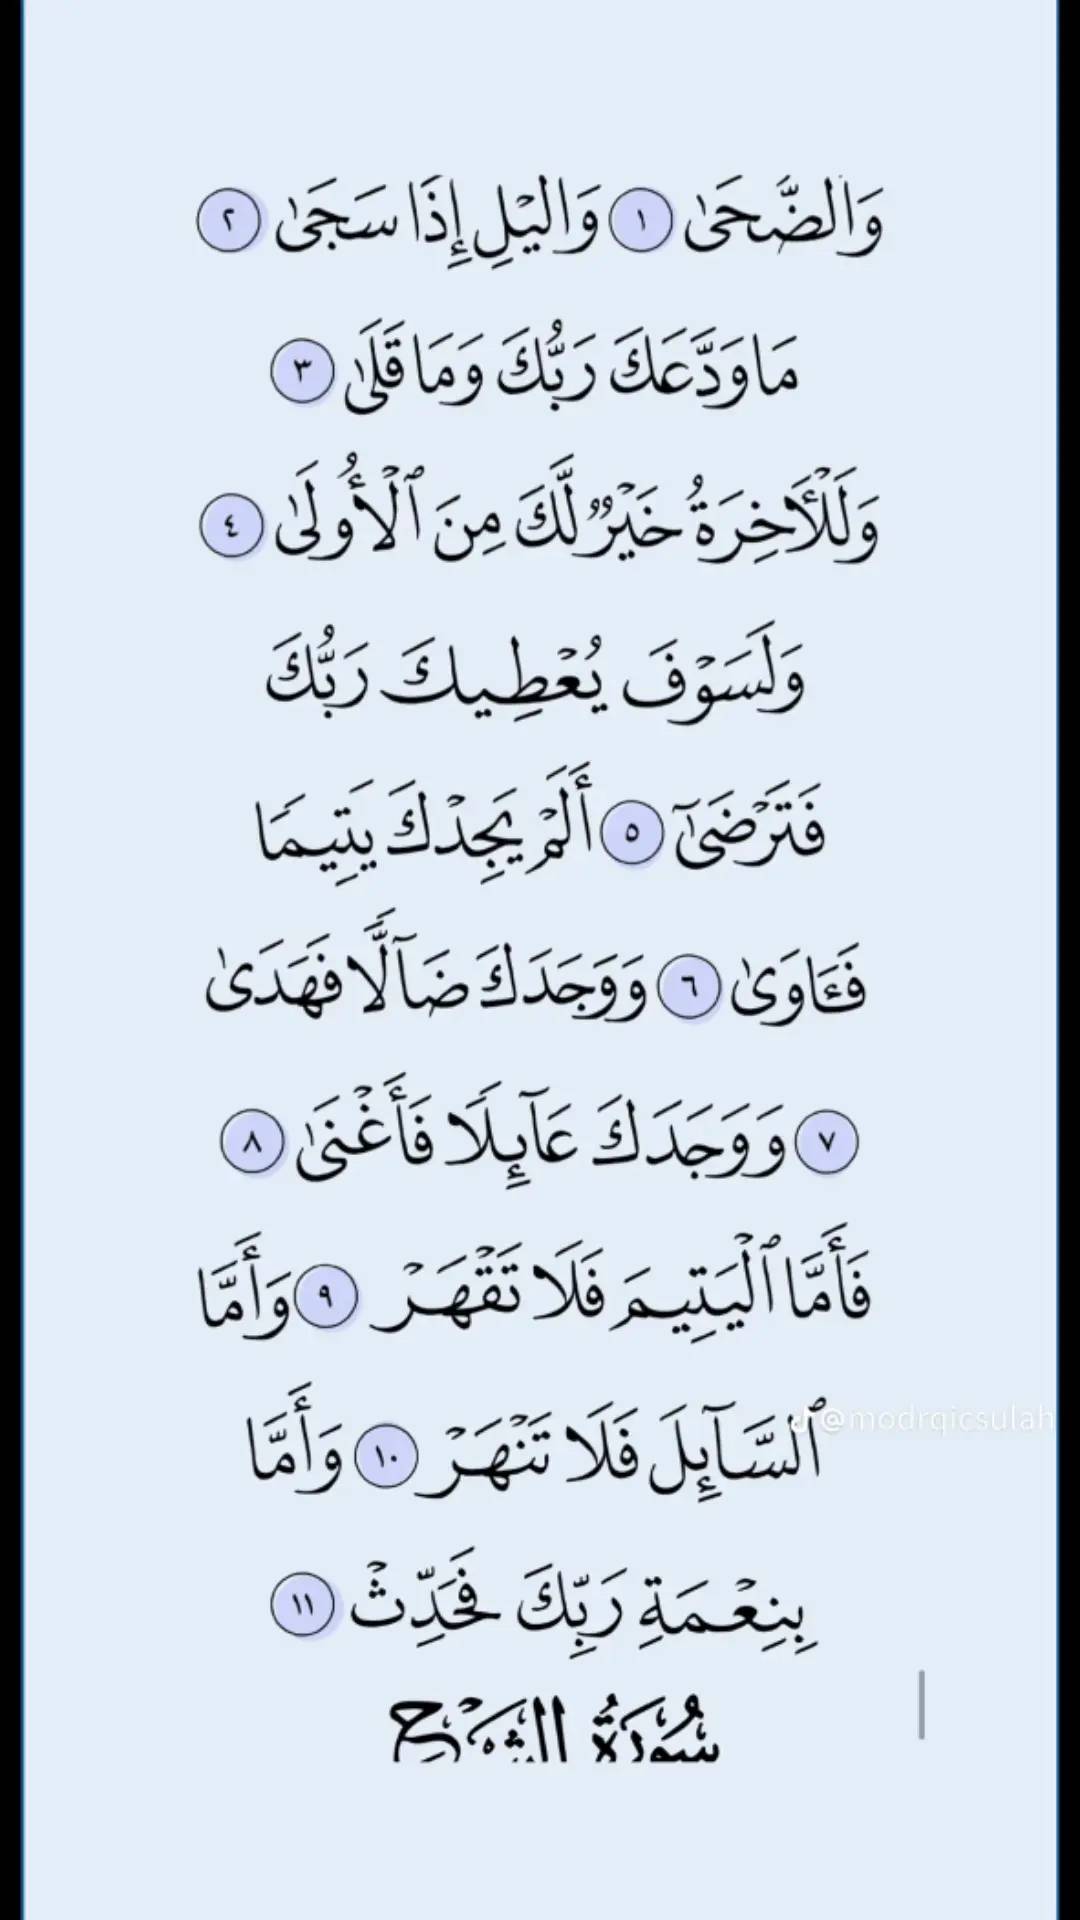 وَالضُّحَىٰ ١ وَاللَّيْلِ إِذَا سَجَىٰ ٢
مَا وَدَّعَكَ رَبُّكَ وَمَا قَلَىٰ ٣
وَلَلْـَٔاخِرَةُ خَيْرٌ لَّكَ مِنَ ٱلْأُولَىٰ ٤
وَلَسَوْفَ يُعْطِيكَ رَبُّكَ
فَتَرْضَىٰٓ ٥ أَلَمْ يَجِدْكَ يَتِيمًا
فَـَٔاوَىٰ ٦ وَوَجَدَكَ ضَآلًّا فَهَدَىٰ
٧ وَوَجَدَكَ عَآئِلًا فَأَغْنَىٰ ٨
فَأَمَّا ٱلْيَتِيمَ فَلَا تَقْهَرْ ٩ وَأَمَّا
ٱلسَّآئِلَ فَلَا تَنْهَرْ ١٠ وَأَمَّا
@modrqicsulah
بِنِعْمَةِ رَبِّكَ فَحَدِّثْ ١١
سُورَةُ الشَّرْحِ